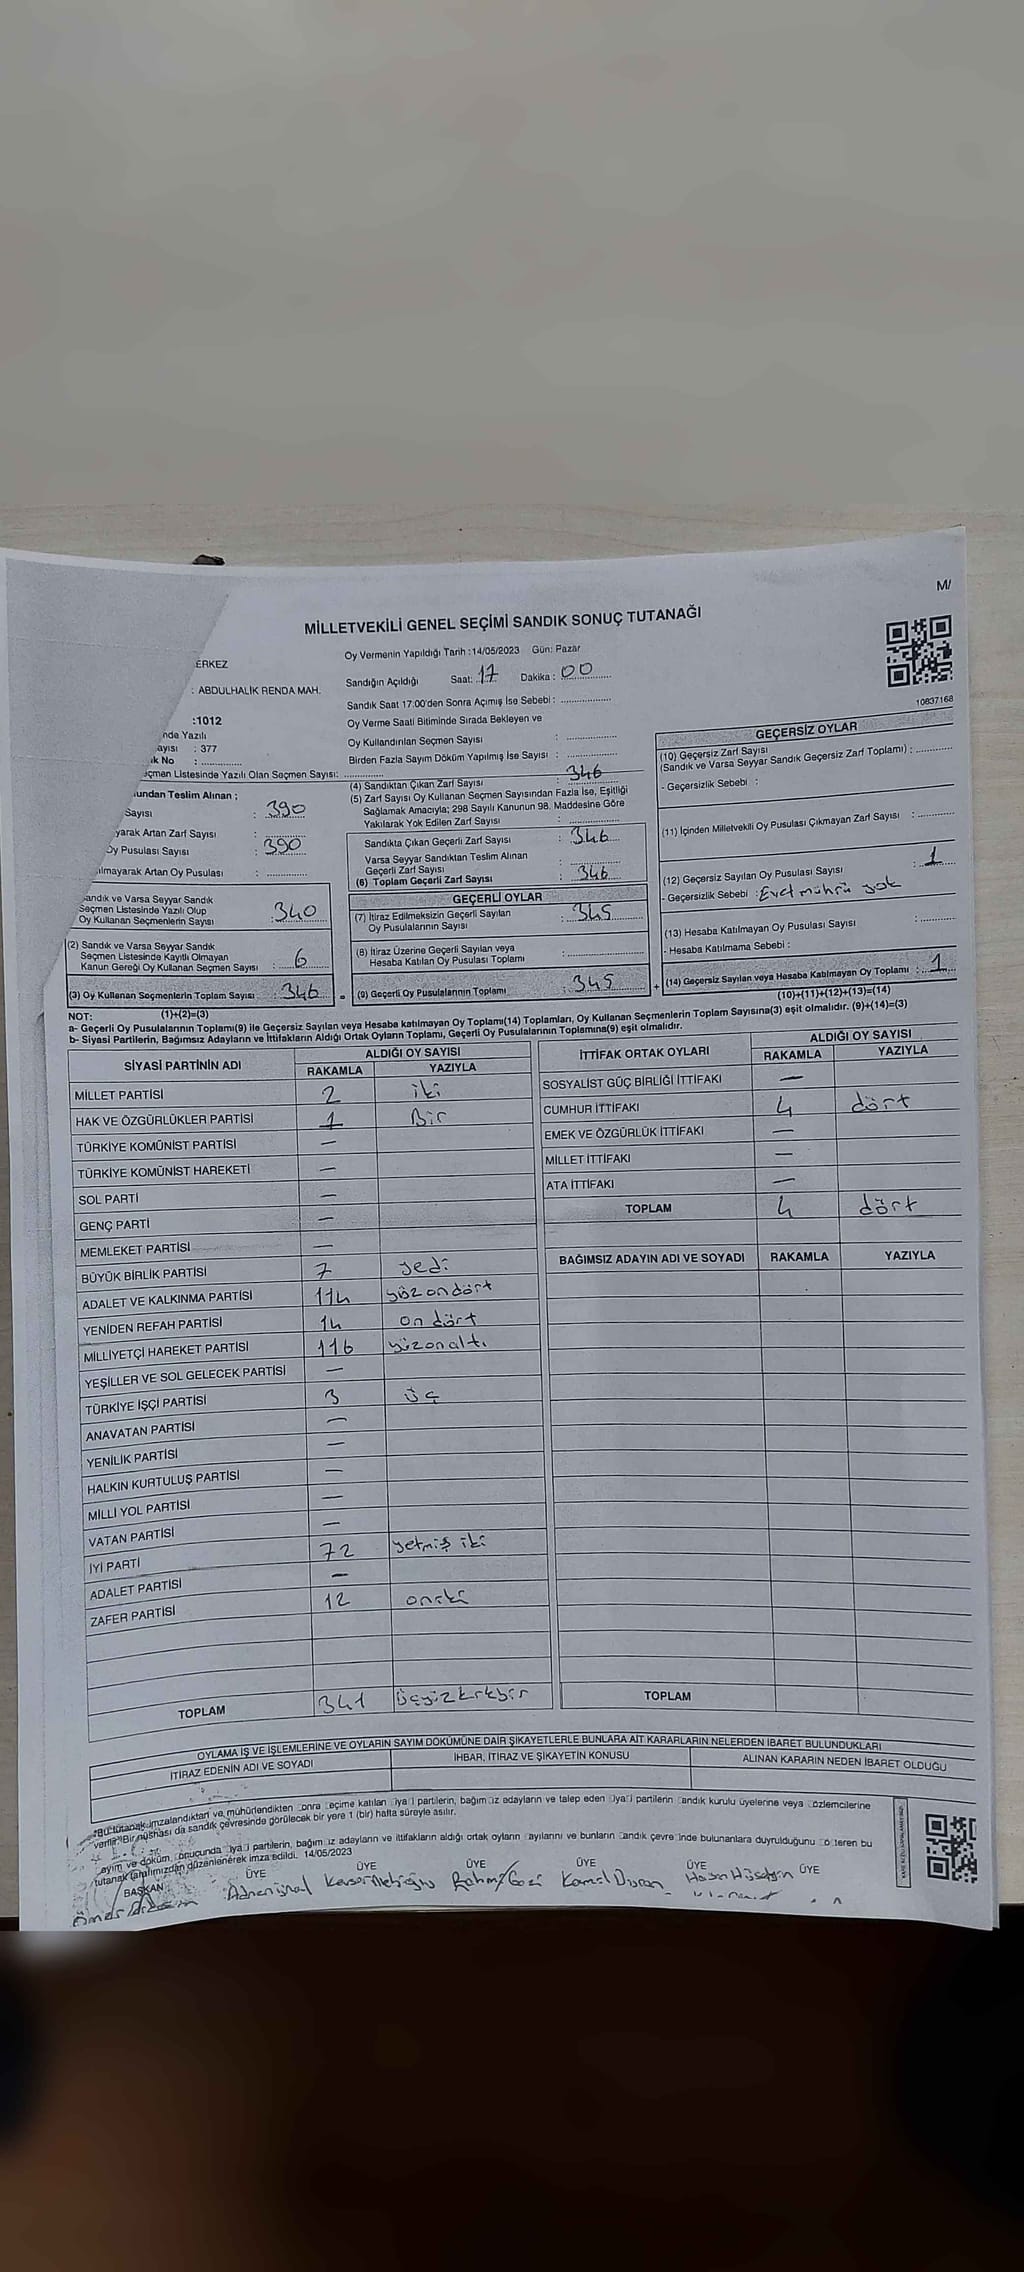 M/
MİLLETVEKİLİ GENEL SEÇİMİ SANDIK SONUÇ TUTANAĞI
ERKEZ
: ABDULHALİK RENDA MAH.
:1012
nde Yazılı
ayısı : 377
ık No :
eçmen Listesinde Yazılı Olan Seçmen Sayısı:
Oy Vermenin Yapıldığı Tarih :14/05/2023 Gün: Pazar
Sandığın Açıldığı Saat: 17 Dakika : 00
Sandık Saat 17:00'den Sonra Açımış İse Sebebi :
Oy Verme Saati Bitiminde Sırada Bekleyen ve
Oy Kullandırılan Seçmen Sayısı :
Birden Fazla Sayım Döküm Yapılmış İse Sayısı :
10837168
undan Teslim Alınan ;
Sayısı : 390
yarak Artan Zarf Sayısı :
Oy Pusulası Sayısı : 390
ılmayarak Artan Oy Pusulası :
andık ve Varsa Seyyar Sandık
Seçmen Listesinde Yazılı Olup
Oy Kullanan Seçmenlerin Sayısı : 340
(2) Sandık ve Varsa Seyyar Sandık
Seçmen Listesinde Kayıtlı Olmayan
Kanun Gereği Oy Kullanan Seçmen Sayısı : 6
(3) Oy Kullanan Seçmenlerin Toplam Sayısı : 346
(1)+(2)=(3)
(4) Sandıktan Çıkan Zarf Sayısı : 346
(5) Zarf Sayısı Oy Kullanan Seçmen Sayısından Fazla İse, Eşitliği
Sağlamak Amacıyla; 298 Sayılı Kanunun 98. Maddesine Göre
Yakılarak Yok Edilen Zarf Sayısı :
Sandıkta Çıkan Geçerli Zarf Sayısı : 346
Varsa Seyyar Sandıktan Teslim Alınan
Geçerli Zarf Sayısı :
(6) Toplam Geçerli Zarf Sayısı : 346
GEÇERLİ OYLAR
(7) İtiraz Edilmeksizin Geçerli Sayılan
Oy Pusulalarının Sayısı : 345
(8) İtiraz Üzerine Geçerli Sayılan veya
Hesaba Katılan Oy Pusulası Toplamı :
= (9) Geçerli Oy Pusulalarının Toplamı : 345
GEÇERSİZ OYLAR
(10) Geçersiz Zarf Sayısı
(Sandık ve Varsa Seyyar Sandık Geçersiz Zarf Toplamı) :
- Geçersizlik Sebebi :
(11) İçinden Milletvekili Oy Pusulası Çıkmayan Zarf Sayısı :
(12) Geçersiz Sayılan Oy Pusulası Sayısı : 1
- Geçersizlik Sebebi : Evet mührü yok
(13) Hesaba Katılmayan Oy Pusulası Sayısı :
- Hesaba Katılmama Sebebi :
+ (14) Geçersiz Sayılan veya Hesaba Katılmayan Oy Toplamı : 1
(10)+(11)+(12)+(13)=(14)
NOT:
a- Geçerli Oy Pusulalarının Toplamı(9) ile Geçersiz Sayılan veya Hesaba katılmayan Oy Toplamı(14) Toplamları, Oy Kullanan Seçmenlerin Toplam Sayısına(3) eşit olmalıdır. (9)+(14)=(3)
b- Siyasi Partilerin, Bağımsız Adayların ve İttifakların Aldığı Ortak Oyların Toplamı, Geçerli Oy Pusulalarının Toplamına(9) eşit olmalıdır.
SİYASİ PARTİNİN ADI ALDIĞI OY SAYISI
RAKAMLA YAZIYLA
MİLLET PARTİSİ 2 iki
HAK VE ÖZGÜRLÜKLER PARTİSİ 1 Bir
TÜRKİYE KOMÜNİST PARTİSİ —
TÜRKİYE KOMÜNİST HAREKETİ —
SOL PARTİ —
GENÇ PARTİ —
MEMLEKET PARTİSİ —
BÜYÜK BİRLİK PARTİSİ 7 yedi
ADALET VE KALKINMA PARTİSİ 114 yüzondört
YENİDEN REFAH PARTİSİ 14 on dört
MİLLİYETÇİ HAREKET PARTİSİ 116 yüzonaltı
YEŞİLLER VE SOL GELECEK PARTİSİ —
TÜRKİYE İŞÇİ PARTİSİ 3 üç
ANAVATAN PARTİSİ —
YENİLİK PARTİSİ —
HALKIN KURTULUŞ PARTİSİ —
MİLLİ YOL PARTİSİ —
VATAN PARTİSİ —
İYİ PARTİ 72 yetmiş iki
ADALET PARTİSİ —
ZAFER PARTİSİ 12 oniki
TOPLAM 341 üçyüzkırkbir
İTTİFAK ORTAK OYLARI ALDIĞI OY SAYISI
RAKAMLA YAZIYLA
SOSYALİST GÜÇ BİRLİĞİ İTTİFAKI —
CUMHUR İTTİFAKI 4 dört
EMEK VE ÖZGÜRLÜK İTTİFAKI —
MİLLET İTTİFAKI —
ATA İTTİFAKI —
TOPLAM 4 dört
BAĞIMSIZ ADAYIN ADI VE SOYADI RAKAMLA YAZIYLA
TOPLAM
OYLAMA İŞ VE İŞLEMLERİNE VE OYLARIN SAYIM DÖKÜMÜNE DAİR ŞİKAYETLERLE BUNLARA AİT KARARLARIN NELERDEN İBARET BULUNDUKLARI
İTİRAZ EDENİN ADI VE SOYADI İHBAR, İTİRAZ VE ŞİKAYETİN KONUSU ALINAN KARARIN NEDEN İBARET OLDUĞU
"Bu tutanak imzalandıktan ve mühürlendikten onra eçime katılan iya i partilerin, bağım ız adayların ve talep eden iya i partilerin andık kurulu üyelerine veya özlemcilerine
verilir. Bir nüshası da sandık çevresinde görülecek bir yere 1 (bir) hafta süreyle asılır.
ayım ve döküm, onucunda iya i partilerin, bağım ız adayların ve ittifakların aldığı ortak oyların ayılarını ve bunların andık çevre inde bulunanlara duyrulduğunu ö teren bu
tutanak tarafımızdan düzenlenerek imza edildi. 14/05/2023
BAŞKAN ÜYE ÜYE ÜYE ÜYE ÜYE ÜYE
Ömer Adnan Rahmi Kamil Hasan Hüseyin